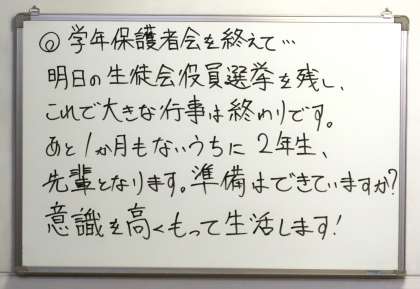 ◎ 学年保護者会を終えて…
明日の生徒会役員選挙を残し、
これで大きな行事は終わりです。
あと1か月もないうちに2年生、
先輩となります。準備はできていますか?
意識を高くもって生活します!